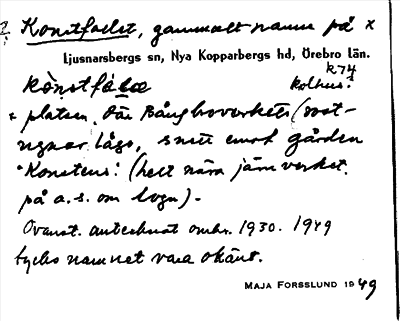 Konstfallet, gammalt namn på x
Ljusnarsbergs sn, Nya Kopparbergs hd, Örebro län.
k74
kolhus.
x platsen, där Bånghoverkets (rost-
ugnar lågo, snett emot gården
"Konstens". (helt nära järnverket.
på a. s. om vägen).
Ovanst. antecknat omkr. 1930. 1949
tycks namnet vara okänt.
MAJA FORSSLUND 1949